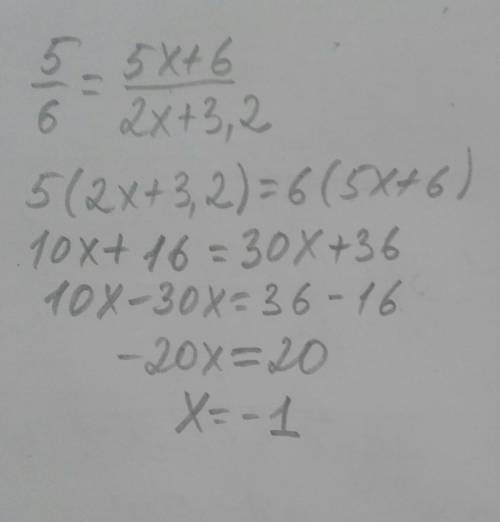 5/6 = 5x+6/2x+3,2
5(2x+3,2)=6(5x+6)
10x+16=30x+36
10x-30x=36-16
-20x=20
x=-1